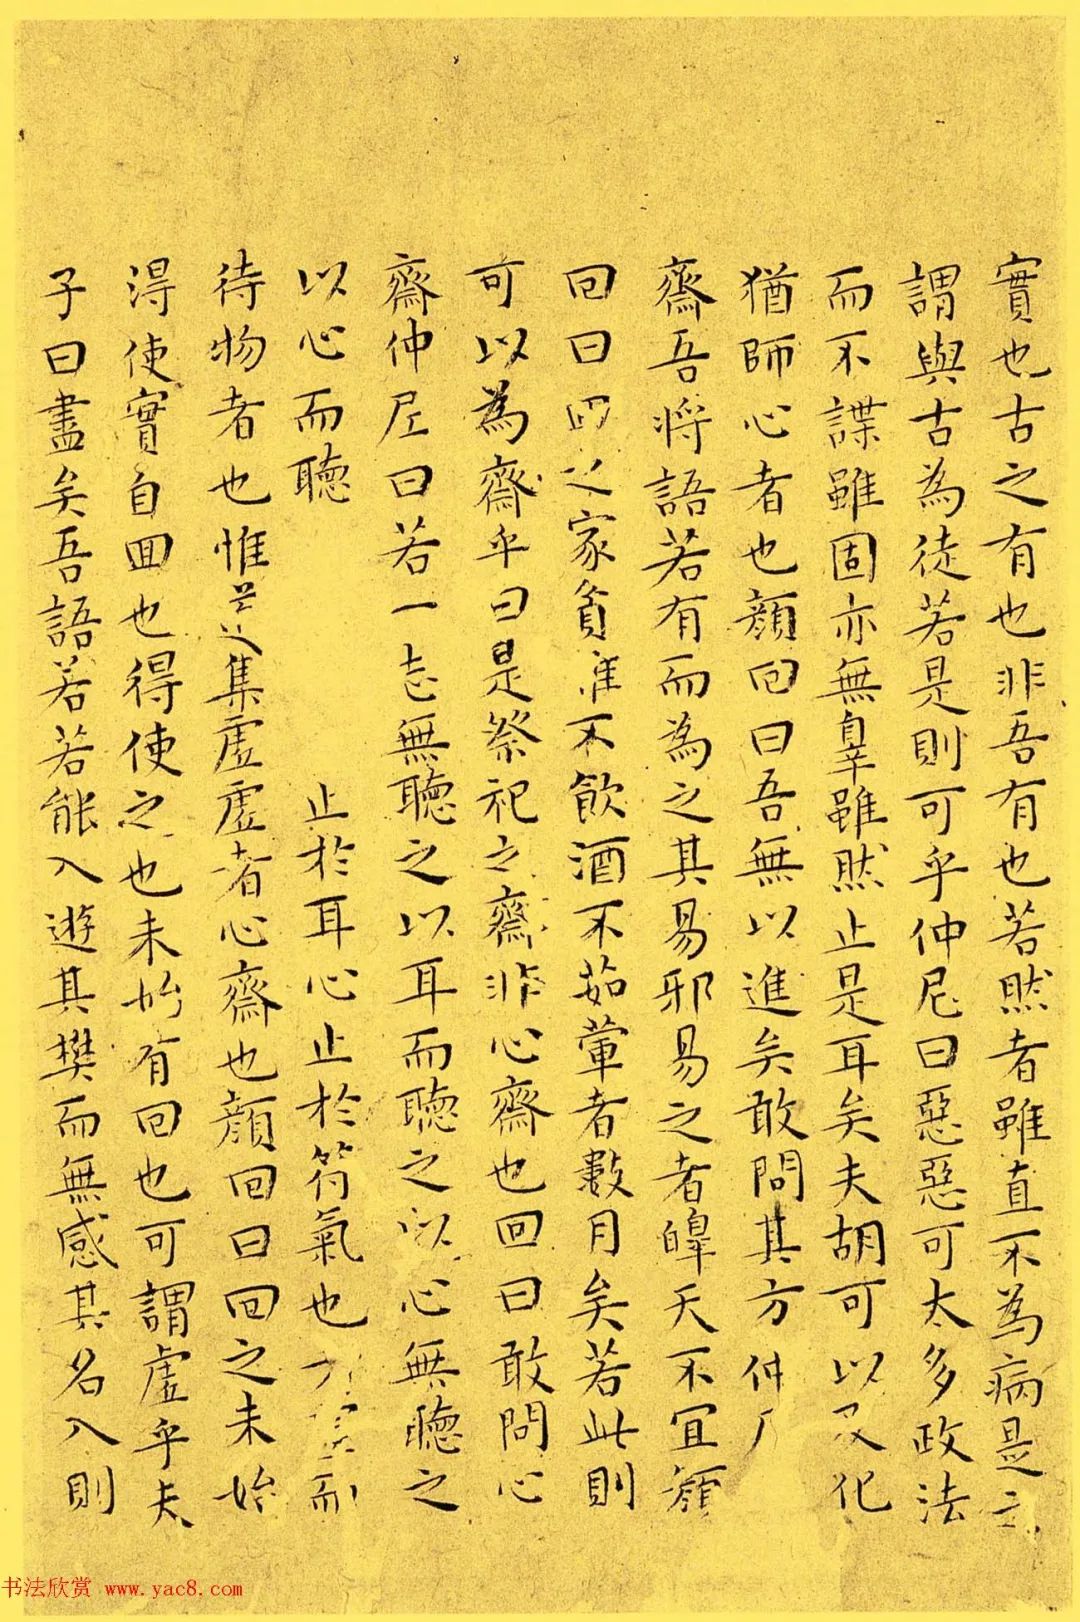 實也古之有也非吾有也若然者雖直不為病是之
謂與古為徒若是則可乎仲尼曰惡惡可太多政法
而不諜雖固亦無辠雖然止是耳矣夫胡可以及化
猶師心者也顔回曰吾無以進矣敢問其方仲
齋吾將語若有而為之其易邪易之者皥天不宜顔
回曰回之家貧唯不飲酒不茹葷者數月矣若此則
可以為齋乎曰是祭祀之齋非心齋也回曰敢問心
齋仲尼曰若一志無聽之以耳而聽之以心無聽之
以心而聽 止於耳心止於符氣也 而
待物者也惟 集虛虛者心齋也顔回曰回之未始
淂使實自回也得使之也未始有回也可謂虛乎夫
子曰盡矣吾語若若能入遊其樊而無感其名入則
书法欣赏 www.yac8.com